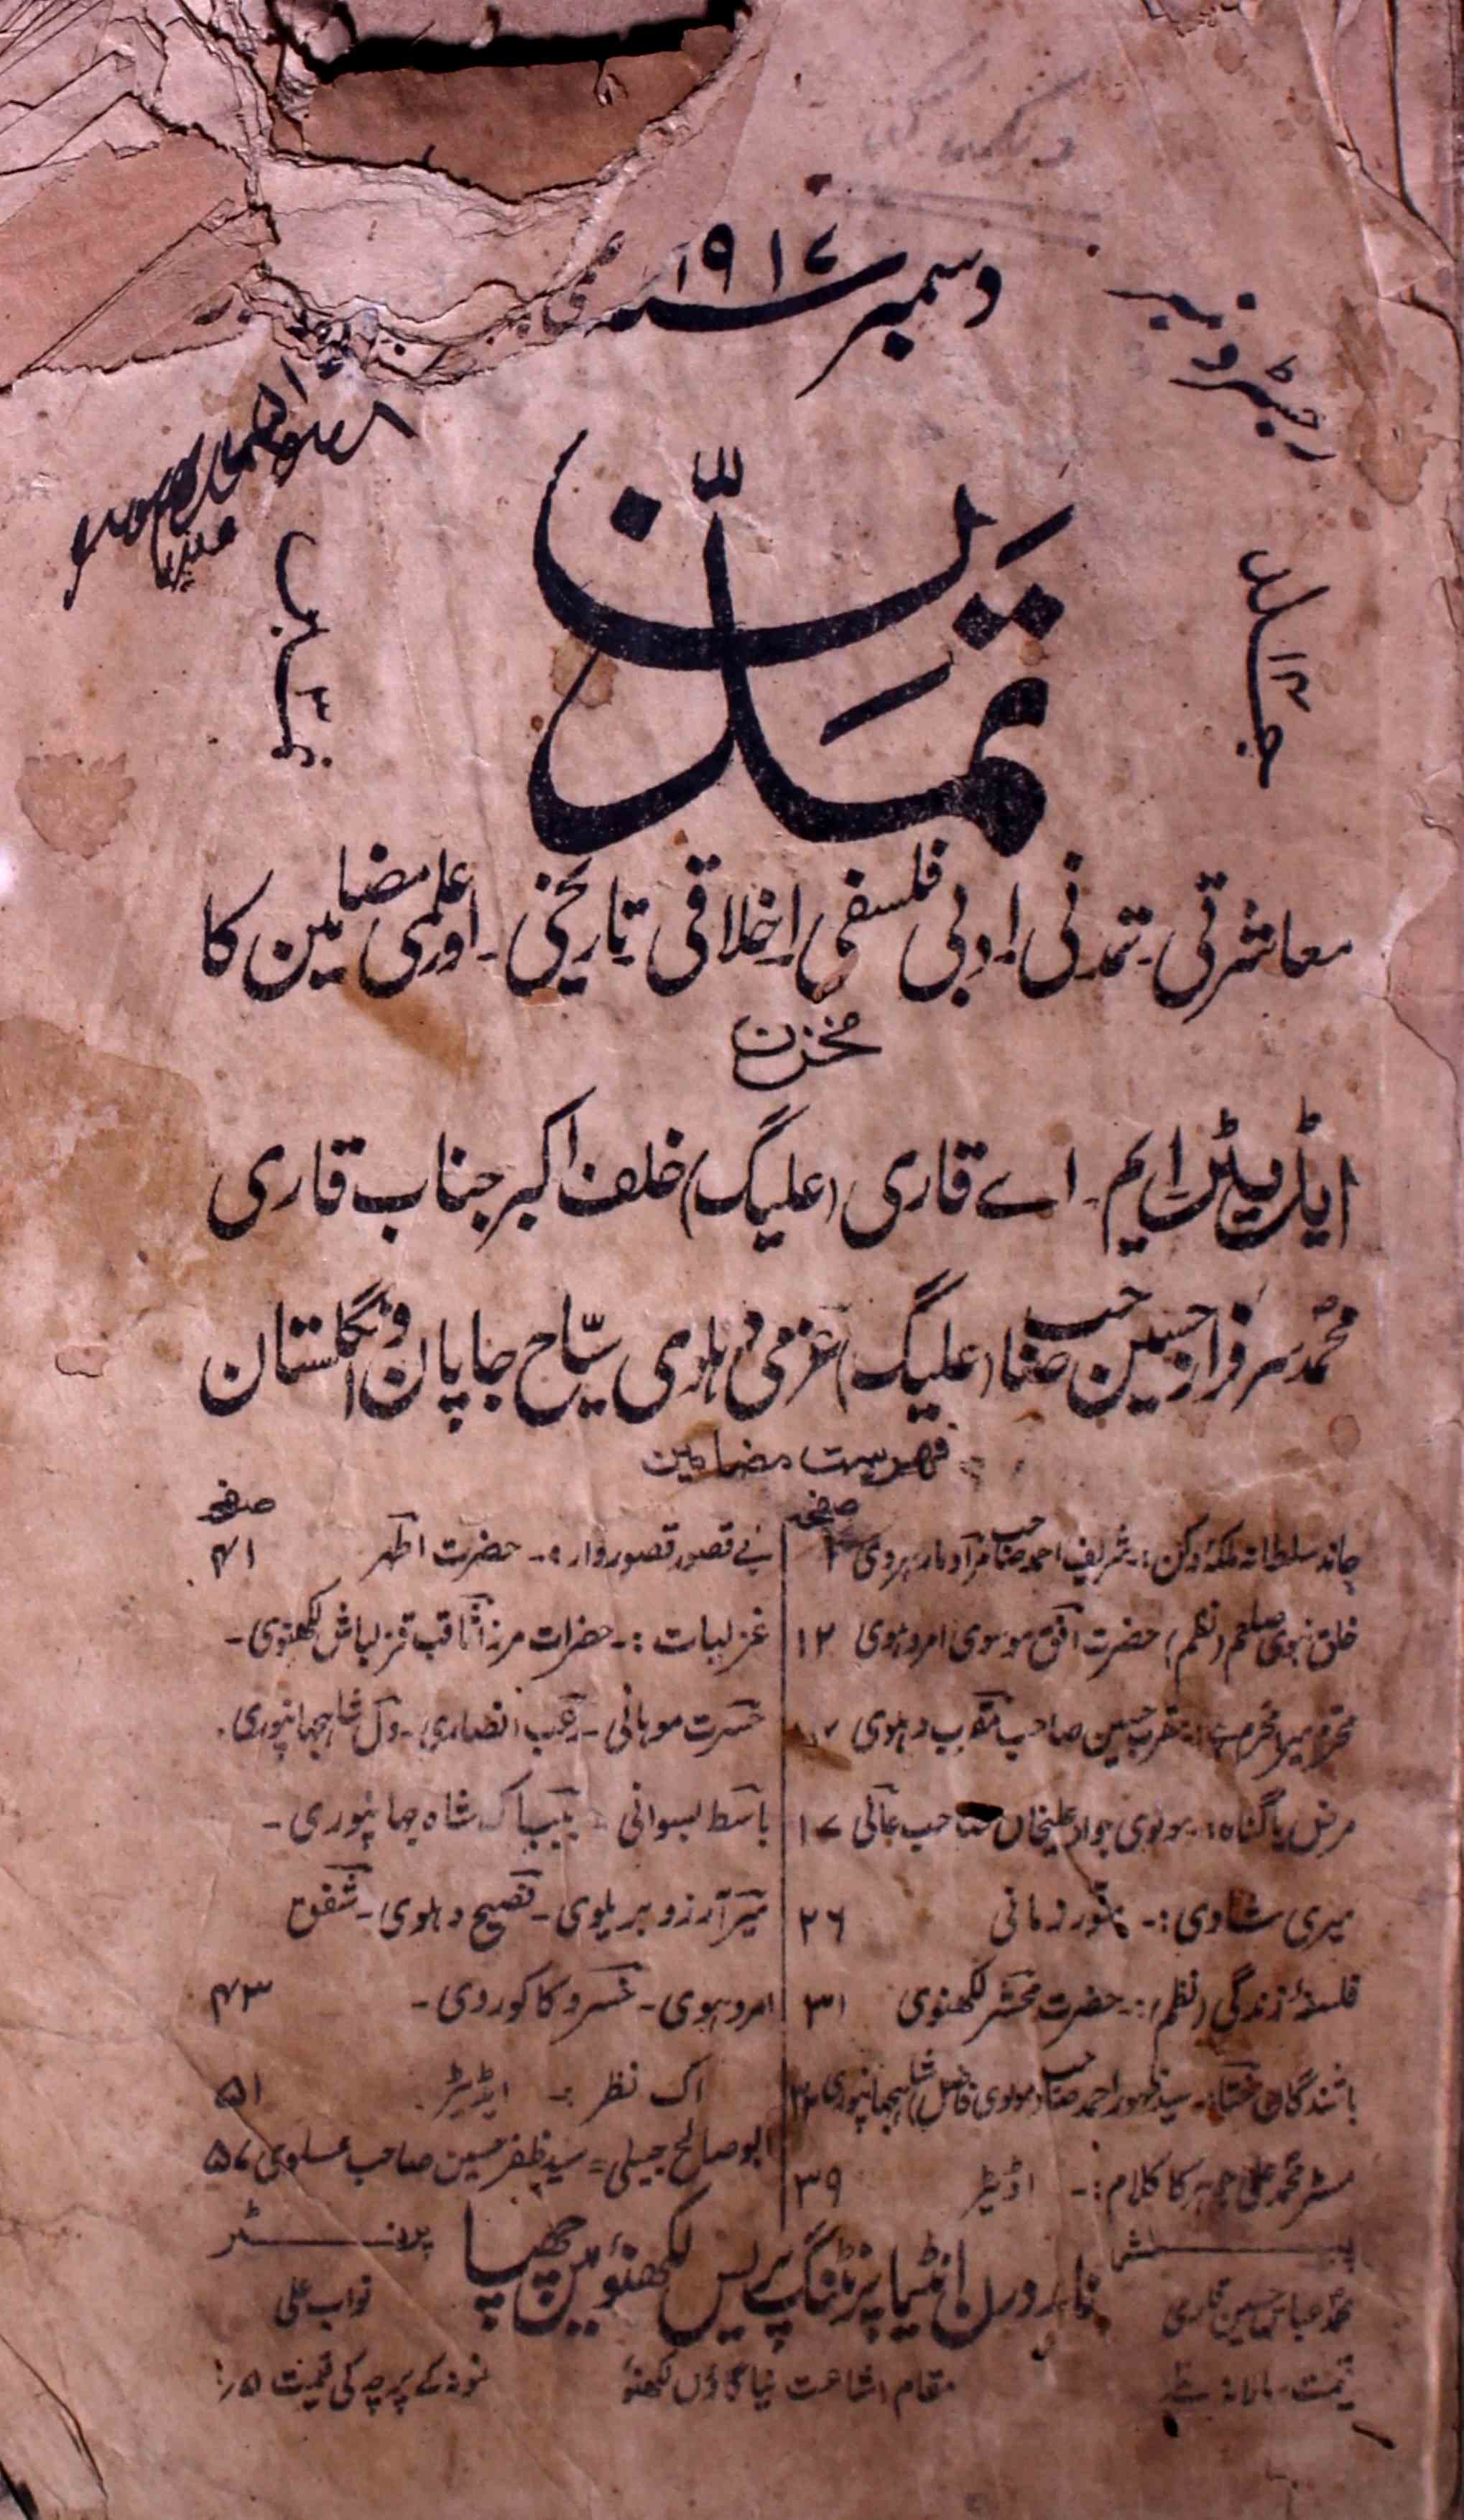 دسمبر سنہ ۱۹۱۷
رجسٹرڈ نمبر
جلد ۱۳
نمبر ۳
تمدّن
معاشرتی۔ تمدنی۔ ادبی فلسفی اخلاقی تاریخی۔ اور علمی مضامین کا
مخزن
ایڈیٹر ایم۔ اے قاری (علیگ) خلف اکبر جناب قاری
محمد سرفراز حسین صاحب (علیگ) عزمی دہلوی سیّاح جاپان و انگلستان
فہرست مضامین
صفحہ
چاند سلطانہ ملکۂ دکن :۔ شریف احمد صاحب مارہروی ۲
خلق نبوی صلعم (نظم) حضرت افق موسوی امروہوی ۱۲
مقرب حسین صاحب مقرب دہلوی
مرض یا گناہ :۔ مولوی جواد علیخاں صاحب عالی ۱۷
میری شادی :۔ منّور زمانی ۲۶
فلسفۂ زندگی (نظم) :۔ حضرت محشر لکھنوی ۳۱
باشندگان :۔ سید ظہور احمد صاحب (مولوی فاضل) شاہجہانپوری
مسٹر محمد علی جوہر کا کلام :۔ اڈیٹر ۳۹
صفحہ
بے قصور قصوروار :۔ حضرت اظہر ۴۱
غزلیات :۔ حضرات مرزا ثاقب قزلباش لکھنوی۔
حسرت موہانی۔ رغب انصاری۔ دل شاہجہانپوری۔
باسط بسوانی۔ بیباک شاہ جہانپوری۔
میر آرزو بریلوی۔ فصیح دہلوی۔ شفق
امروہوی۔ خسرو کاکوروی۔ ۴۳
اک نظر :۔ ایڈیٹر ۵۱
ابو صالح جیلی = سید ظفر حسین صاحب ۵۷
پبلشر
محمد عباس حسین قاری
نامی ورل انڈیا پرنٹنگ پریس لکھنؤ میں چھپا
پرنٹر
نواب علی
قیمت سالانہ
مقام اشاعت نیا گاؤں لکھنؤ
نمونہ کے پرچہ کی قیمت ۵؍